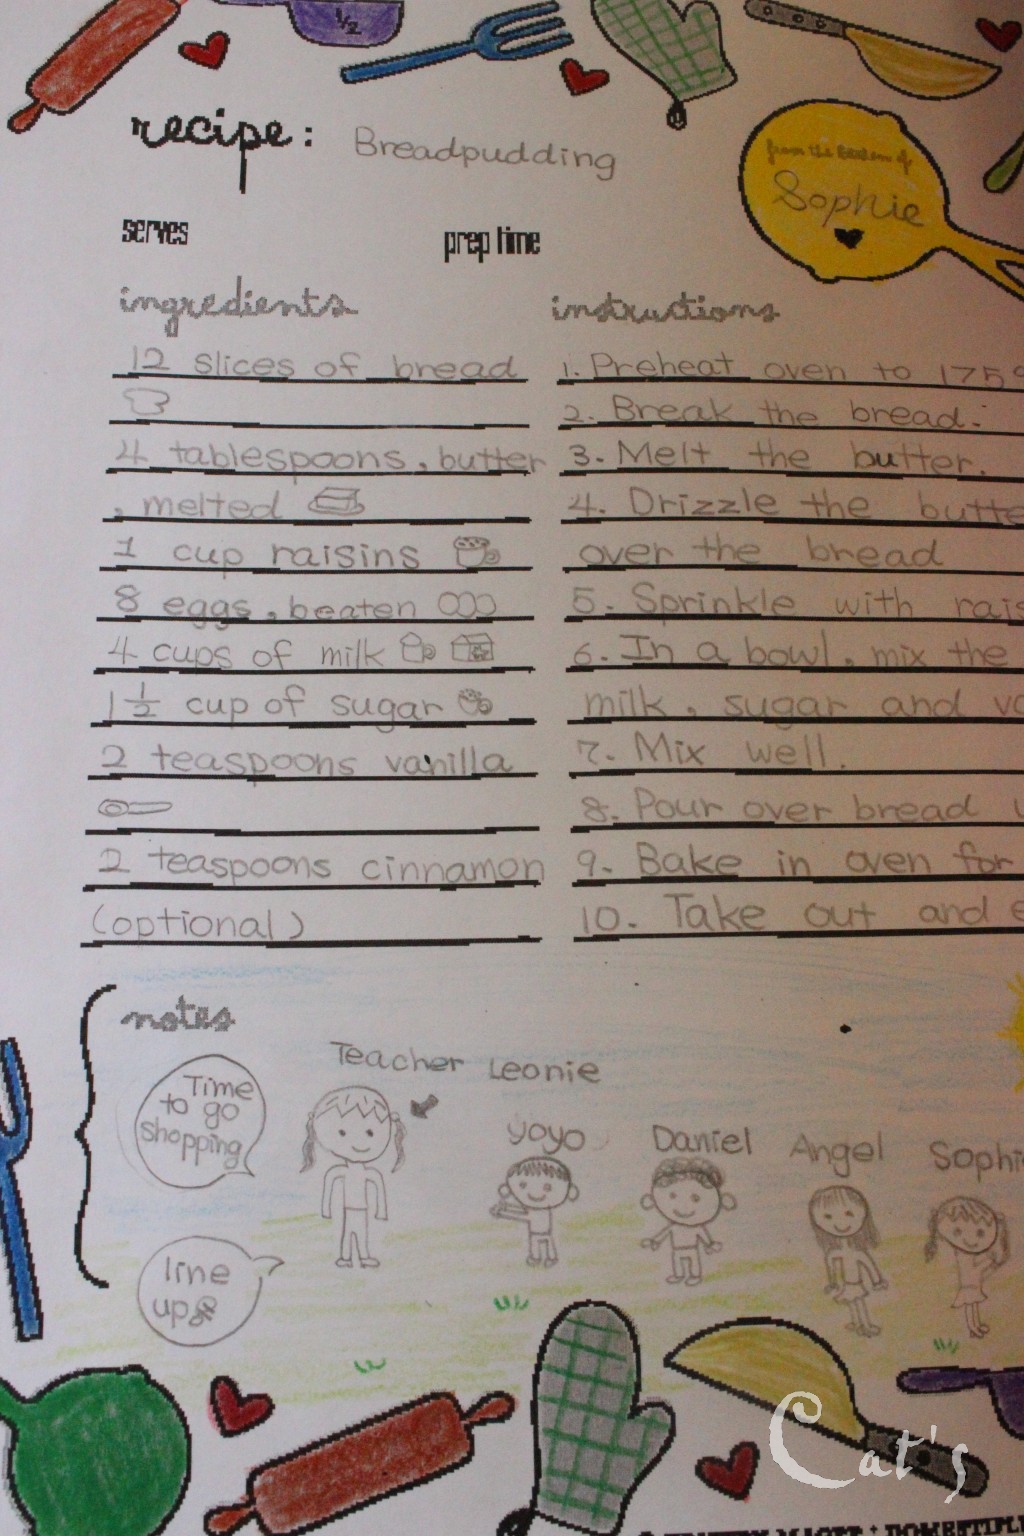 1/2
recipe: Breadpudding
from the kitchen of
Sophie
serves
prep time
ingredients
12 slices of bread
4 tablespoons, butter
, melted
1 cup raisins
8 eggs, beaten
4 cups of milk
1 1/2 cup of sugar
2 teaspoons vanilla
2 teaspoons cinnamon
(optional)
instructions
1. Preheat oven to 175°
2. Break the bread.
3. Melt the butter.
4. Drizzle the butte
over the bread
5. Sprinkle with rais
6. In a bowl, mix the
milk, sugar and va
7. Mix well.
8. Pour over bread
9. Bake in oven for
10. Take out and
notes
Time
to go
shopping
line
up
Teacher Leonie
yoyo
Daniel
Angel
Sophi
Cat's